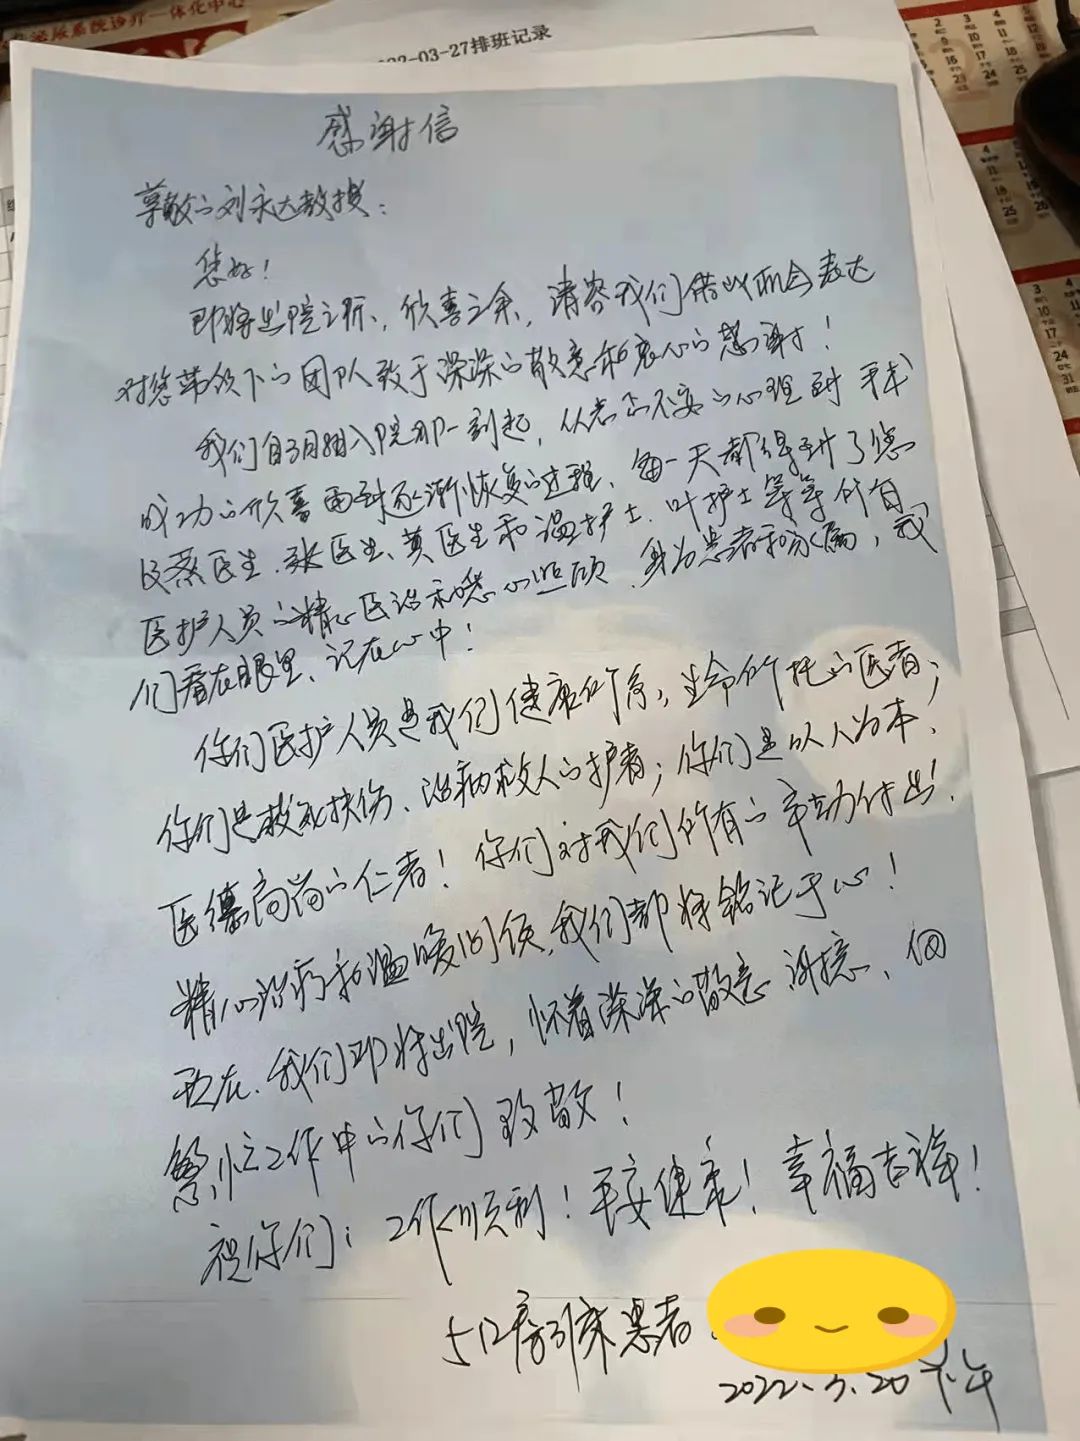 泌尿系统诊疗一体化中心
22-03-27排班记录
感谢信
尊敬的刘永达教授：
您好！
即将出院之际、欣喜之余，请容我们借此机会表达
对您带领下的团队致于深深的敬意和衷心的感谢！
我们自3月 入院那一刻起，从忐忑不安的心理到手术
成功的欣喜再到逐渐恢复的过程，每一天都得到了您
及蔡医生、张医生、黄医生和温护士、叶护士等等所有
医护人员的精心医治和悉心照顾，身为患者和家属，我
们看在眼里、记在心中！
你们医护人员是我们健康所系，生命所托的医者；
你们是救死扶伤、治病救人的护者；你们是以人为本、
医德高尚的仁者！你们对我们所有的辛勤付出、
精心治疗和温暖问候，我们都将铭记于心！
现在，我们即将出院，怀着深深的敬意 谢意、向
繁忙工作中的你们致敬！
祝你们：工作顺利！平安健康！幸福吉祥！
512房31床患者
2022.3.20 下午